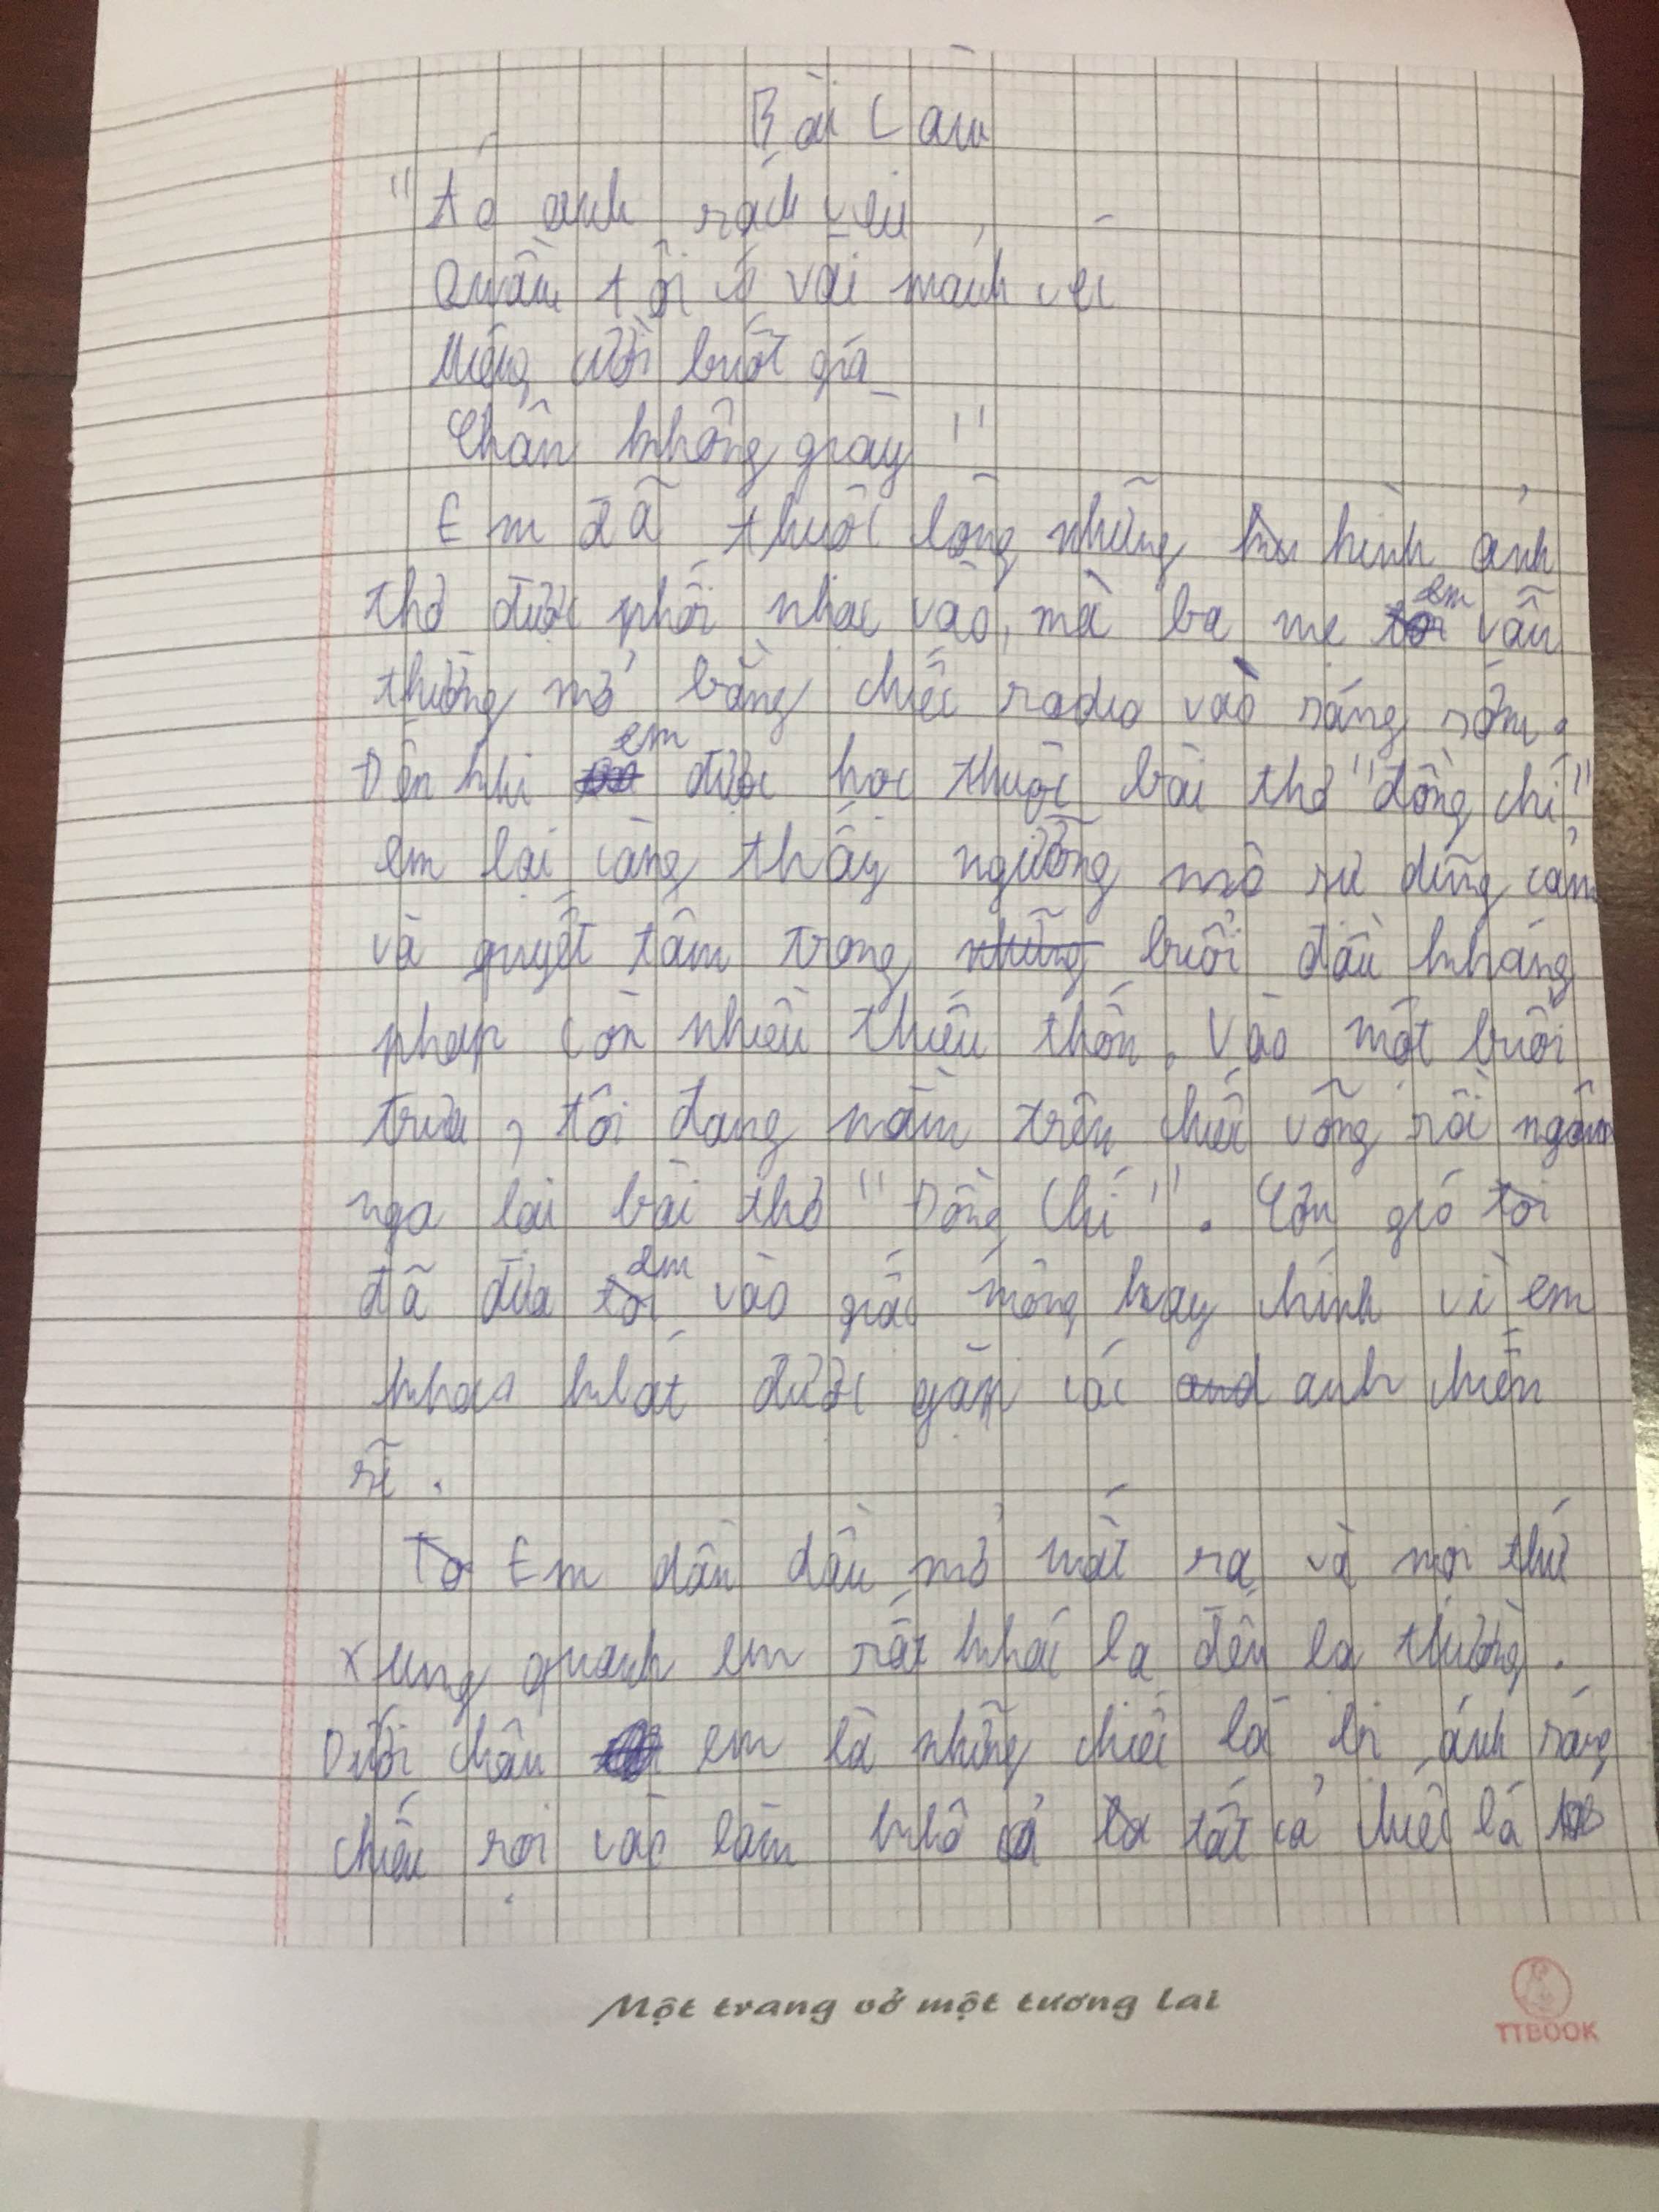 Bài Làm
"Áo anh rách vai
Quần tôi có vài mảnh vá
Miệng cười buốt giá
Chân không giày"
Em đã thuộc lòng những hình ảnh
thơ được phối nhạc vào, mà ba mẹ em vẫn
thường mở bằng chiếc radio vào sáng sớm.
Đến khi em được học thuộc bài thơ "đồng chí"
em lại càng thấy ngưỡng mộ sự dũng cảm
và quyết tâm trong buổi đầu kháng
pháp còn nhiều thiếu thốn. Vào một buổi
trưa, tôi đang nằm trên chiếc võng rồi ngâm
nga lại bài thơ "Đồng Chí". Cơn gió
đã đưa em vào giấc mộng hay chính vì em
khao khát được gặp các anh chiến
sĩ.
Em dần dần mở mắt ra và mọi thứ
xung quanh em rất khác lạ đến lạ thường.
Dưới chân em là những chiếc lá bị ánh sáng
chiếu rọi vào làm khô cả tất cả chiếc lá
Một trang vở một tương lai
TTBOOK